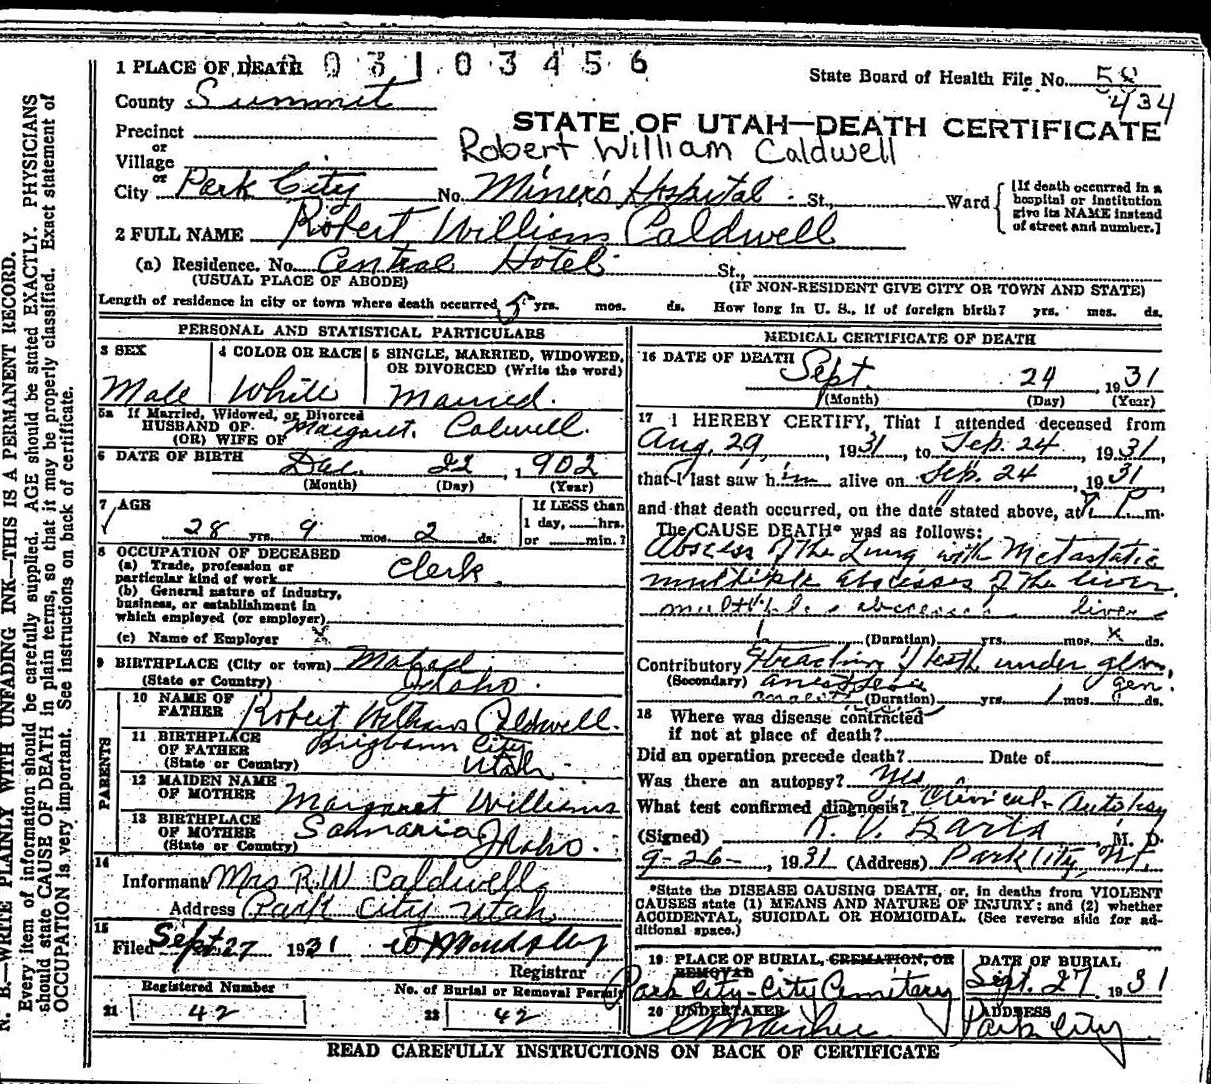 1 PLACE OF DEATH 031 03456
State Board of Health File No. 58
434
County Summit
STATE OF UTAH—DEATH CERTIFICATE
Precinct
or
Robert William Caldwell
Village
or
City Park City No. Miner's Hospital St., Ward
[If death occurred in a
hospital or institution
give its NAME instead
of street and number.]
2 FULL NAME Robert William Caldwell
(a) Residence. No. Central Hotel St.,
(USUAL PLACE OF ABODE) (IF NON-RESIDENT GIVE CITY OR TOWN AND STATE)
Length of residence in city or town where death occurred 5 yrs. mos. ds. How long in U. S., if of foreign birth? yrs. mos. ds.
PERSONAL AND STATISTICAL PARTICULARS
3 SEX 4 COLOR OR RACE 5 SINGLE, MARRIED, WIDOWED,
OR DIVORCED (Write the word)
Male White Married.
5a If Married, Widowed, or Divorced
HUSBAND OF
(OR) WIFE OF Margaret Calwell.
6 DATE OF BIRTH Dec. 22, 1902
(Month) (Day) (Year)
7 AGE If LESS than
1 day, hrs.
28 yrs. 9 mos. 2 ds. or min.?
8 OCCUPATION OF DECEASED
(a) Trade, profession or
particular kind of work clerk
(b) General nature of industry,
business, or establishment in
which employed (or employer)
(c) Name of Employer x
9 BIRTHPLACE (City or town) Malad
(State or Country) Idaho.
PARENTS
10 NAME OF
FATHER Robert William Caldwell.
11 BIRTHPLACE
OF FATHER Brigham City
(State or Country) Utah
12 MAIDEN NAME
OF MOTHER Margaret Williams
13 BIRTHPLACE
OF MOTHER Samaria
(State or Country) Idaho.
14
Informant Mrs R.W Caldwell
Address Park City Utah
15
Filed Sept 27 1931
Registrar
Registered Number No. of Burial or Removal Permit
21 42 22 42
MEDICAL CERTIFICATE OF DEATH
16 DATE OF DEATH Sept. 24 1931
(Month) (Day) (Year)
17 I HEREBY CERTIFY, That I attended deceased from
Aug. 29, 1931, to Sep. 24, 1931,
that I last saw him alive on Sep. 24, 1931
and that death occurred, on the date stated above, at P. m.
The CAUSE DEATH* was as follows:
Abscess of the Lung with Metastatic
multiple abscesses of the liver.
multiple abscesses liver
(Duration) yrs. mos. x ds.
Contributory Extraction of teeth under
(Secondary) anesthesia gen.
(Duration) yrs. 1 mos. ds.
18 Where was disease contracted
if not at place of death?
Did an operation precede death? Date of
Was there an autopsy? Yes
What test confirmed diagnosis? Clinical - Autopsy
(Signed) M. D.
9-26-, 1931 (Address) Park City, Ut.
*State the DISEASE CAUSING DEATH, or, in deaths from VIOLENT
CAUSES state (1) MEANS AND NATURE OF INJURY; and (2) whether
ACCIDENTAL, SUICIDAL OR HOMICIDAL. (See reverse side for ad-
ditional space.)
19 PLACE OF BURIAL, CREMATION, OR
REMOVAL
Park City - City Cemetary
DATE OF BURIAL
Sept. 27 1931
20 UNDERTAKER
ADDRESS
Park City
READ CAREFULLY INSTRUCTIONS ON BACK OF CERTIFICATE
N. B.—WRITE PLAINLY WITH UNFADING INK—THIS IS A PERMANENT RECORD.
Every item of information should be carefully supplied. AGE should be stated EXACTLY. PHYSICIANS
should state CAUSE OF DEATH in plain terms, so that it may be properly classified. Exact statement of
OCCUPATION is very important. See instructions on back of certificate.